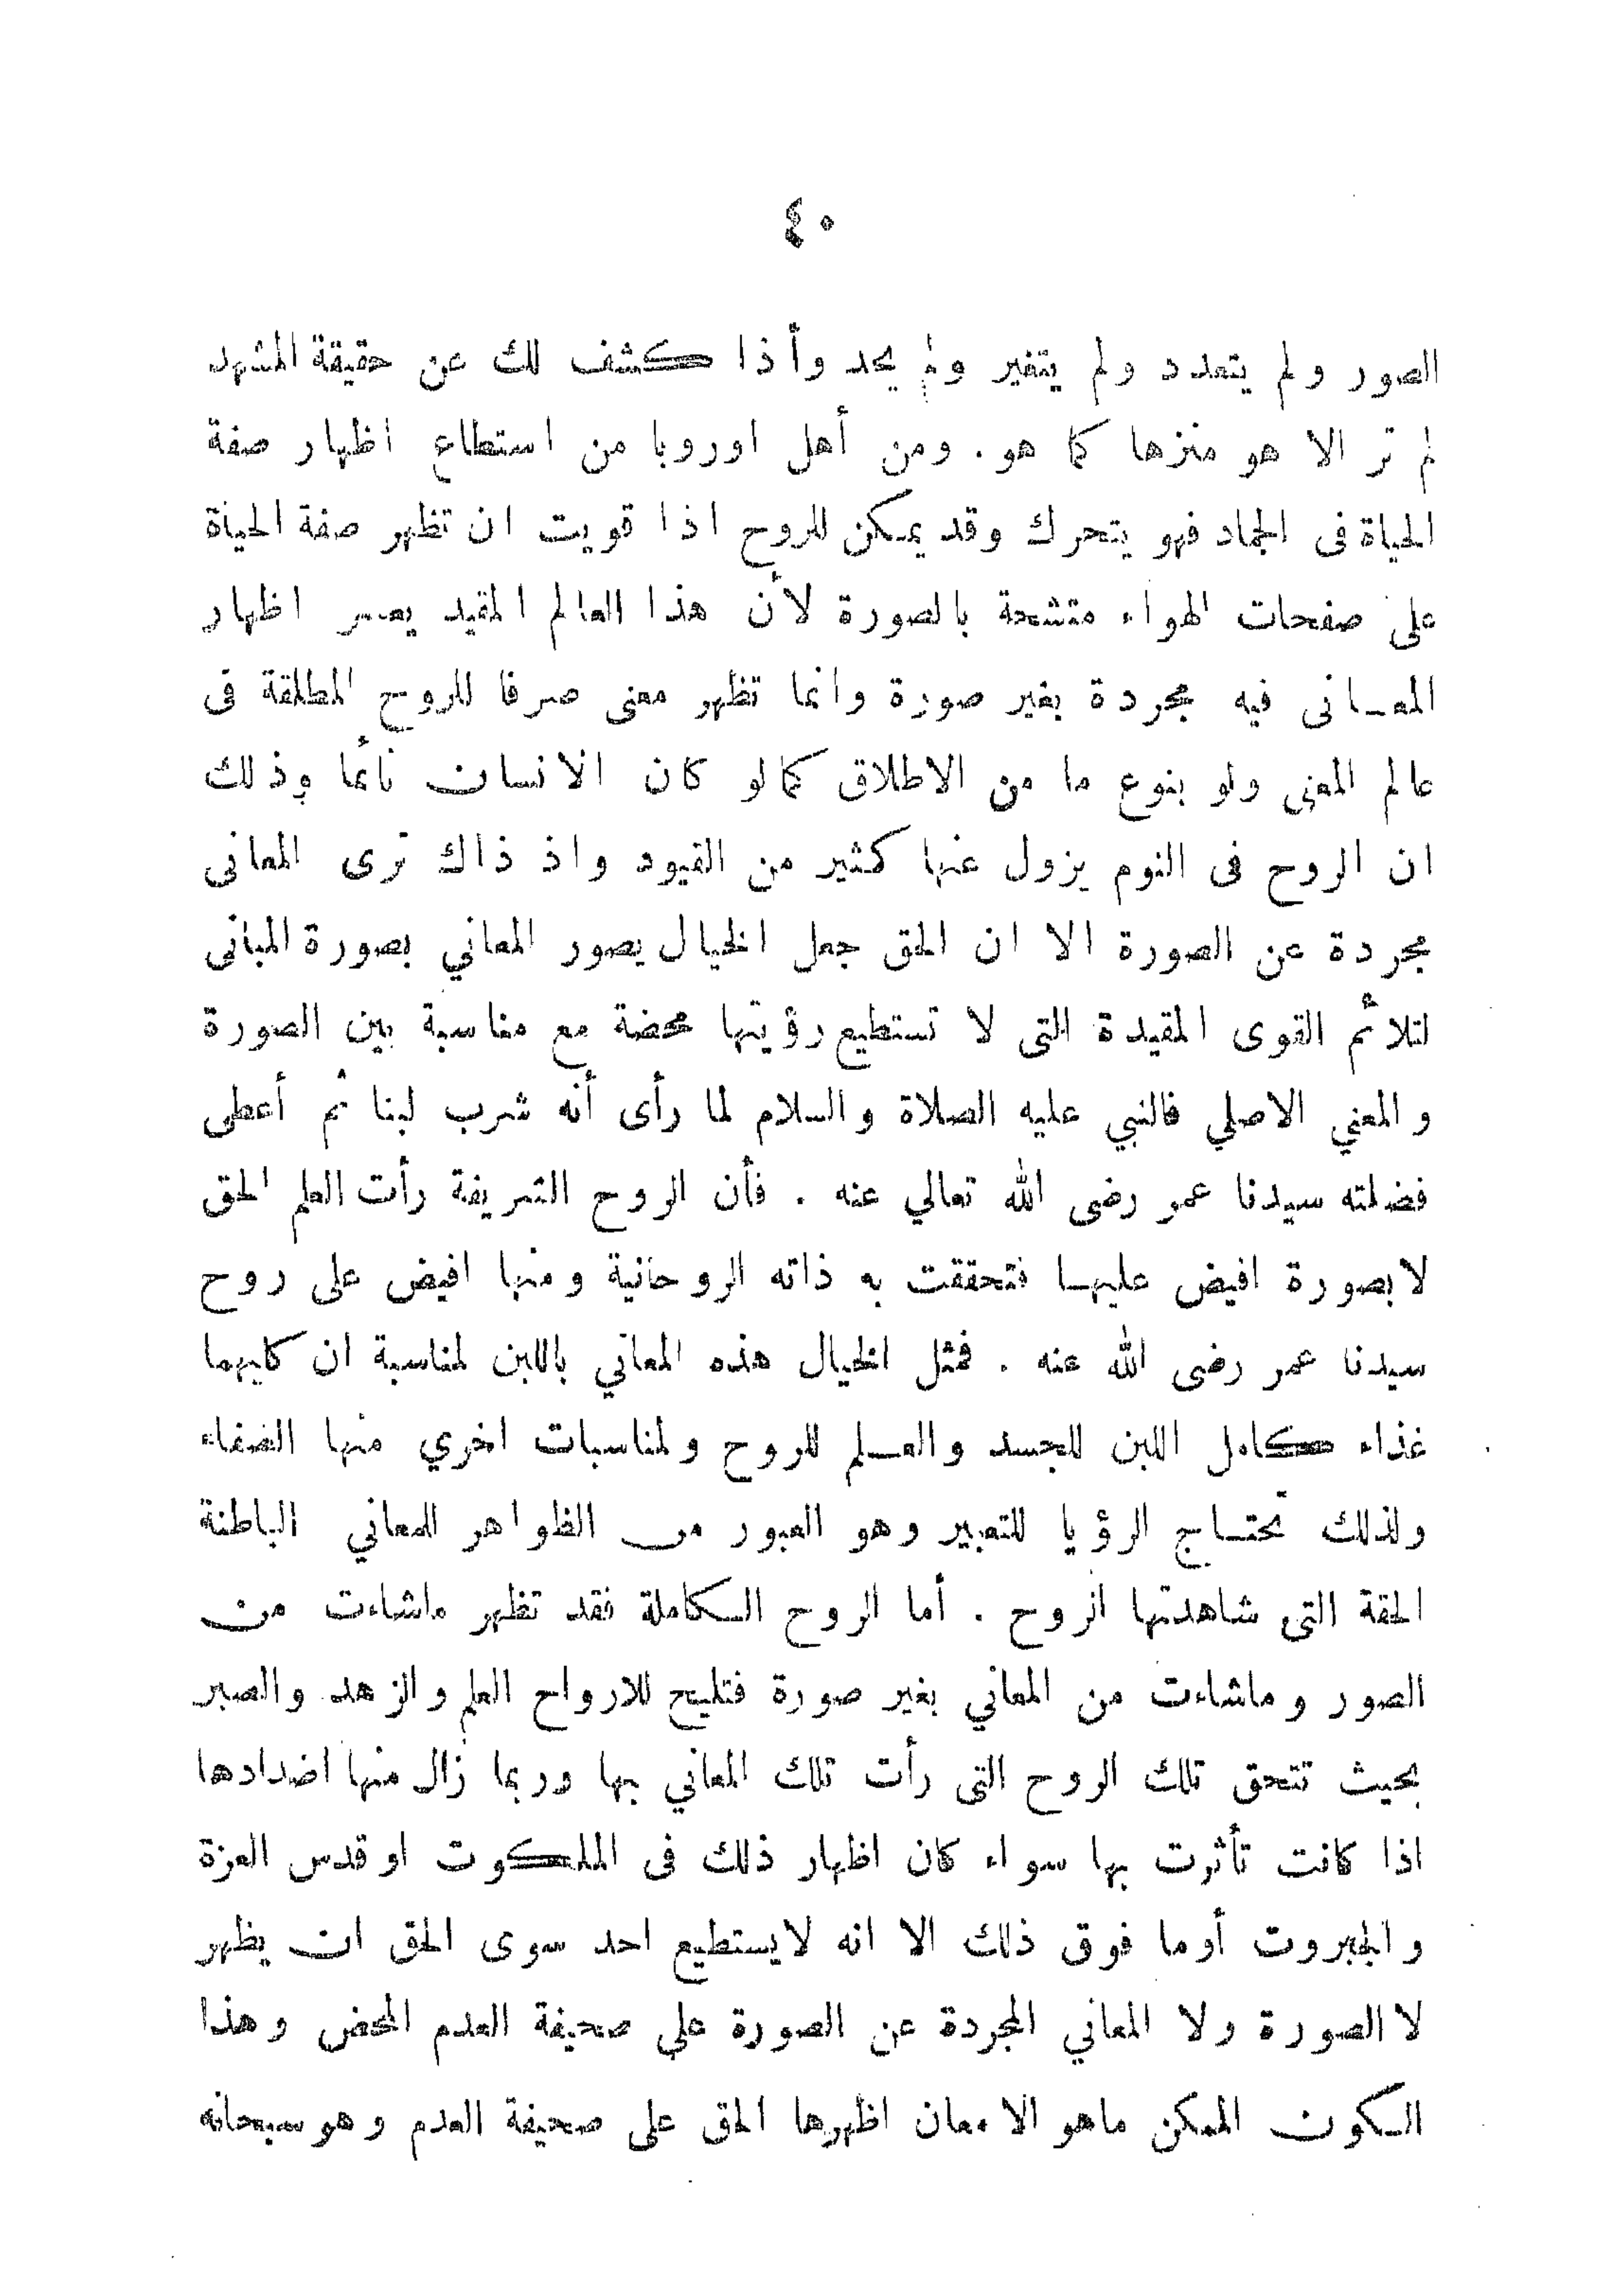 ٤٠
الصور ولم يتعدد ولم يتغير ولم يحد وأذا كشف لك عن حقيقة المشهد
لم تر الا هو منزها كما هو. ومن أهل اوروبا من استطاع اظهار صفة
الحياة فى الجماد فهو يتحرك وقد يمكن للروح اذا قويت ان تظهر صفة الحياة
على صفحات الهواء متشحة بالصورة لأن هذا العالم المقيد يعسر اظهار
المعانى فيه مجردة بغير صورة وانما تظهر معنى صرفا للروح المطلقة فى
عالم المعنى ولو بنوع ما من الاطلاق كما لو كان الانسان نائما وذلك
ان الروح فى النوم يزول عنها كثير من القيود واذ ذاك ترى المعانى
مجردة عن الصورة الا ان الحق جعل الخيال يصور المعاني بصورة المبانى
لتلائم القوى المقيدة التى لا تستطيع رؤيتها محضة مع مناسبة بين الصورة
والمعني الاصلي فالنبي عليه الصلاة والسلام لما رأى أنه شرب لبنا ثم أعطى
فضلته سيدنا عمر رضى الله تعالي عنه . فأن الروح الشريفة رأت العلم الحق
لا بصورة افيض عليها فتحققت به ذاته الروحانية ومنها افيض على روح
سيدنا عمر رضى الله عنه . فمثل الخيال هذه المعاني باللبن لمناسبة ان كليهما
غذاء كامل اللبن للجسد والعلم للروح ولمناسبات اخري منها الصفاء
ولذلك تحتاج الرؤيا للتعبير وهو العبور من الظواهر للمعاني الباطنة
الحقة التى شاهدتها الروح . أما الروح الكاملة فقد تظهر ماشاءت من
الصور وماشاءت من المعاني بغير صورة فتليح للارواح العلم والزهد والصبر
بحيث تتحق تلك الروح التى رأت تلك المعاني بها وربما زال منها اضدادها
اذا كانت تأثرت بها سواء كان اظهار ذلك فى الملكوت او قدس العزة
والجبروت أوما فوق ذلك الا انه لايستطيع احد سوى الحق ان يظهر
لا الصورة ولا المعاني المجردة عن الصورة علي صحيفة العدم المحض وهذا
الكون الممكن ماهو الا معان اظهرها الحق على صحيفة العدم وهو سبحانه